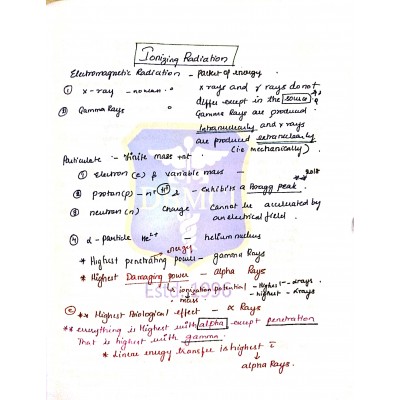 Ionizing Radiation
Electromagnetic Radiation - packet of energy.
① x-ray - no mass "
x rays and γ rays do not
differ except in the source
② Gamma Rays "
Gamma Rays are produced
Intranuclearly and x rays
are produced extranuclearly
(i.e mechanically)
Particulate - Finite mass
① Electron (e) & variable mass -
② proton (p) - exhibits a Bragg peak 2018
③ neutron (n) charge Cannot be accelerated by
an electrical field.
④ α-particle He2+ - helium nucleus
energy
* Highest penetrating power - gamma Rays
* Highest Damaging power - alpha Rays
ionization potential - Highest - α rays
mass - highest - α rays
Estd. 1990
** Highest Biological effect - α Rays
** everything is Highest with alpha except penetration
That is highest with gamma.
* Linear energy transfer is highest c̄
↓
alpha Rays.